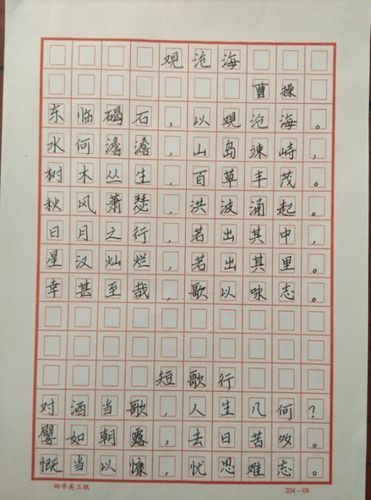 观沧海
曹操
东临碣石，以观沧海。
水何澹澹，山岛竦峙，
树木丛生，百草丰茂。
秋风萧瑟，洪波涌起。
日月之行，若出其中，
星汉灿烂，若出其里。
幸甚至哉，歌以咏志。
短歌行
对酒当歌，人生几何？
譬如朝露，去日苦多。
慨当以慷，忧思难忘。
田字美工纸
204-08